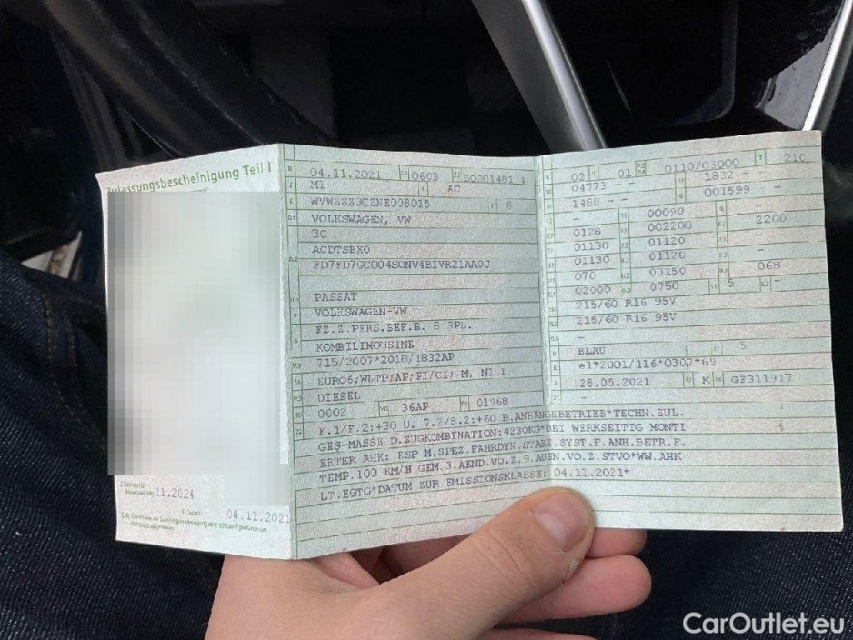 Zulassungsbescheinigung Teil I
11.2024
04.11.2021
04.11.2021 0603
M1 AC
8
VOLKSWAGEN, VW
3C
ACDTSBX0
PASSAT
VOLKSWAGEN-VW
FZ.Z.PERS.BEF.B. 8 SPL.
KOMBILIMOUSINE
715/2007*2018/1832AP
EURO6;WLTP;AP;PI/CI; M, N1 I
DIESEL
0002 36AP 01968
02 01 0110/03000 210
04773 - 1832 -
1468 - - 001599 -
00090 -
0128 002200 2200
01130 01120 -
01130 01120 -
070 03150 068
02000 0750 5 -
215/60 R16 95V
215/60 R16 95V
-
BLAU 5
e1*2001/116*0307*69
28.05.2021 K GF311917
F.1/F.2:+30 U. 7.2/8.2:+60 B.ANHÄNGEBETRIEB*TECHN.ZUL.
GES-MASSE D.ZUGKOMBINATION:4230KG*BEI WERKSEITIG MONTI
ERTER AHK: ESP M.SPEZ.FAHRDYN.STABI.SYST.F.ANH.BETR.F.
TEMP.100 KM/H GEM.3.AEND.VO.Z.9.AUSN.VO.Z.STVO*WW.AHK
LT.EGTG*DATUM ZUR EMISSIONSKLASSE: 04.11.2021*
CarOutlet.eu